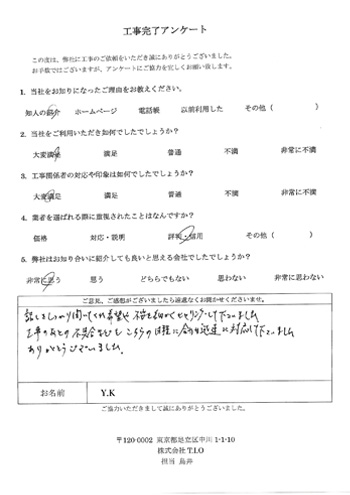 工事完了アンケート
この度は、弊社に工事のご依頼をいただき誠にありがとうございました。
お手数ではございますが、アンケートにご協力を宜しくお願い致します。
1. 当社をお知りになったご理由をお教えください。
知人の紹介 ホームページ 電話帳 以前利用した その他（ ）
2. 当社をご利用いただき如何でしたでしょうか？
大変満足 満足 普通 不満 非常に不満
3. 工事関係者の対応や印象は如何でしたでしょうか？
大変満足 満足 普通 不満 非常に不満
4. 業者を選ばれる際に重視されたことはなんですか？
価格 対応・説明 評判・信用 その他（ ）
5. 弊社はお知り合いに紹介しても良いと思える会社でしたでしょうか？
非常に思う 思う どちらでもない 思わない 非常に思わない
ご意見、ご感想がございましたら遠慮なくお聞かせくださいませ。
話をしっかり聞いてくれ希望や 不安を細かくヒヤリングして下さいました
工事のあとの不具合なども こちらの日程に合わせ迅速に対応して下さいました
ありがとうございました。
お名前 Y.K
ご協力いただきまして誠にありがとうございました。
〒120-0002 東京都足立区中川 1-1-10
株式会社 T.I.O
担当 島井